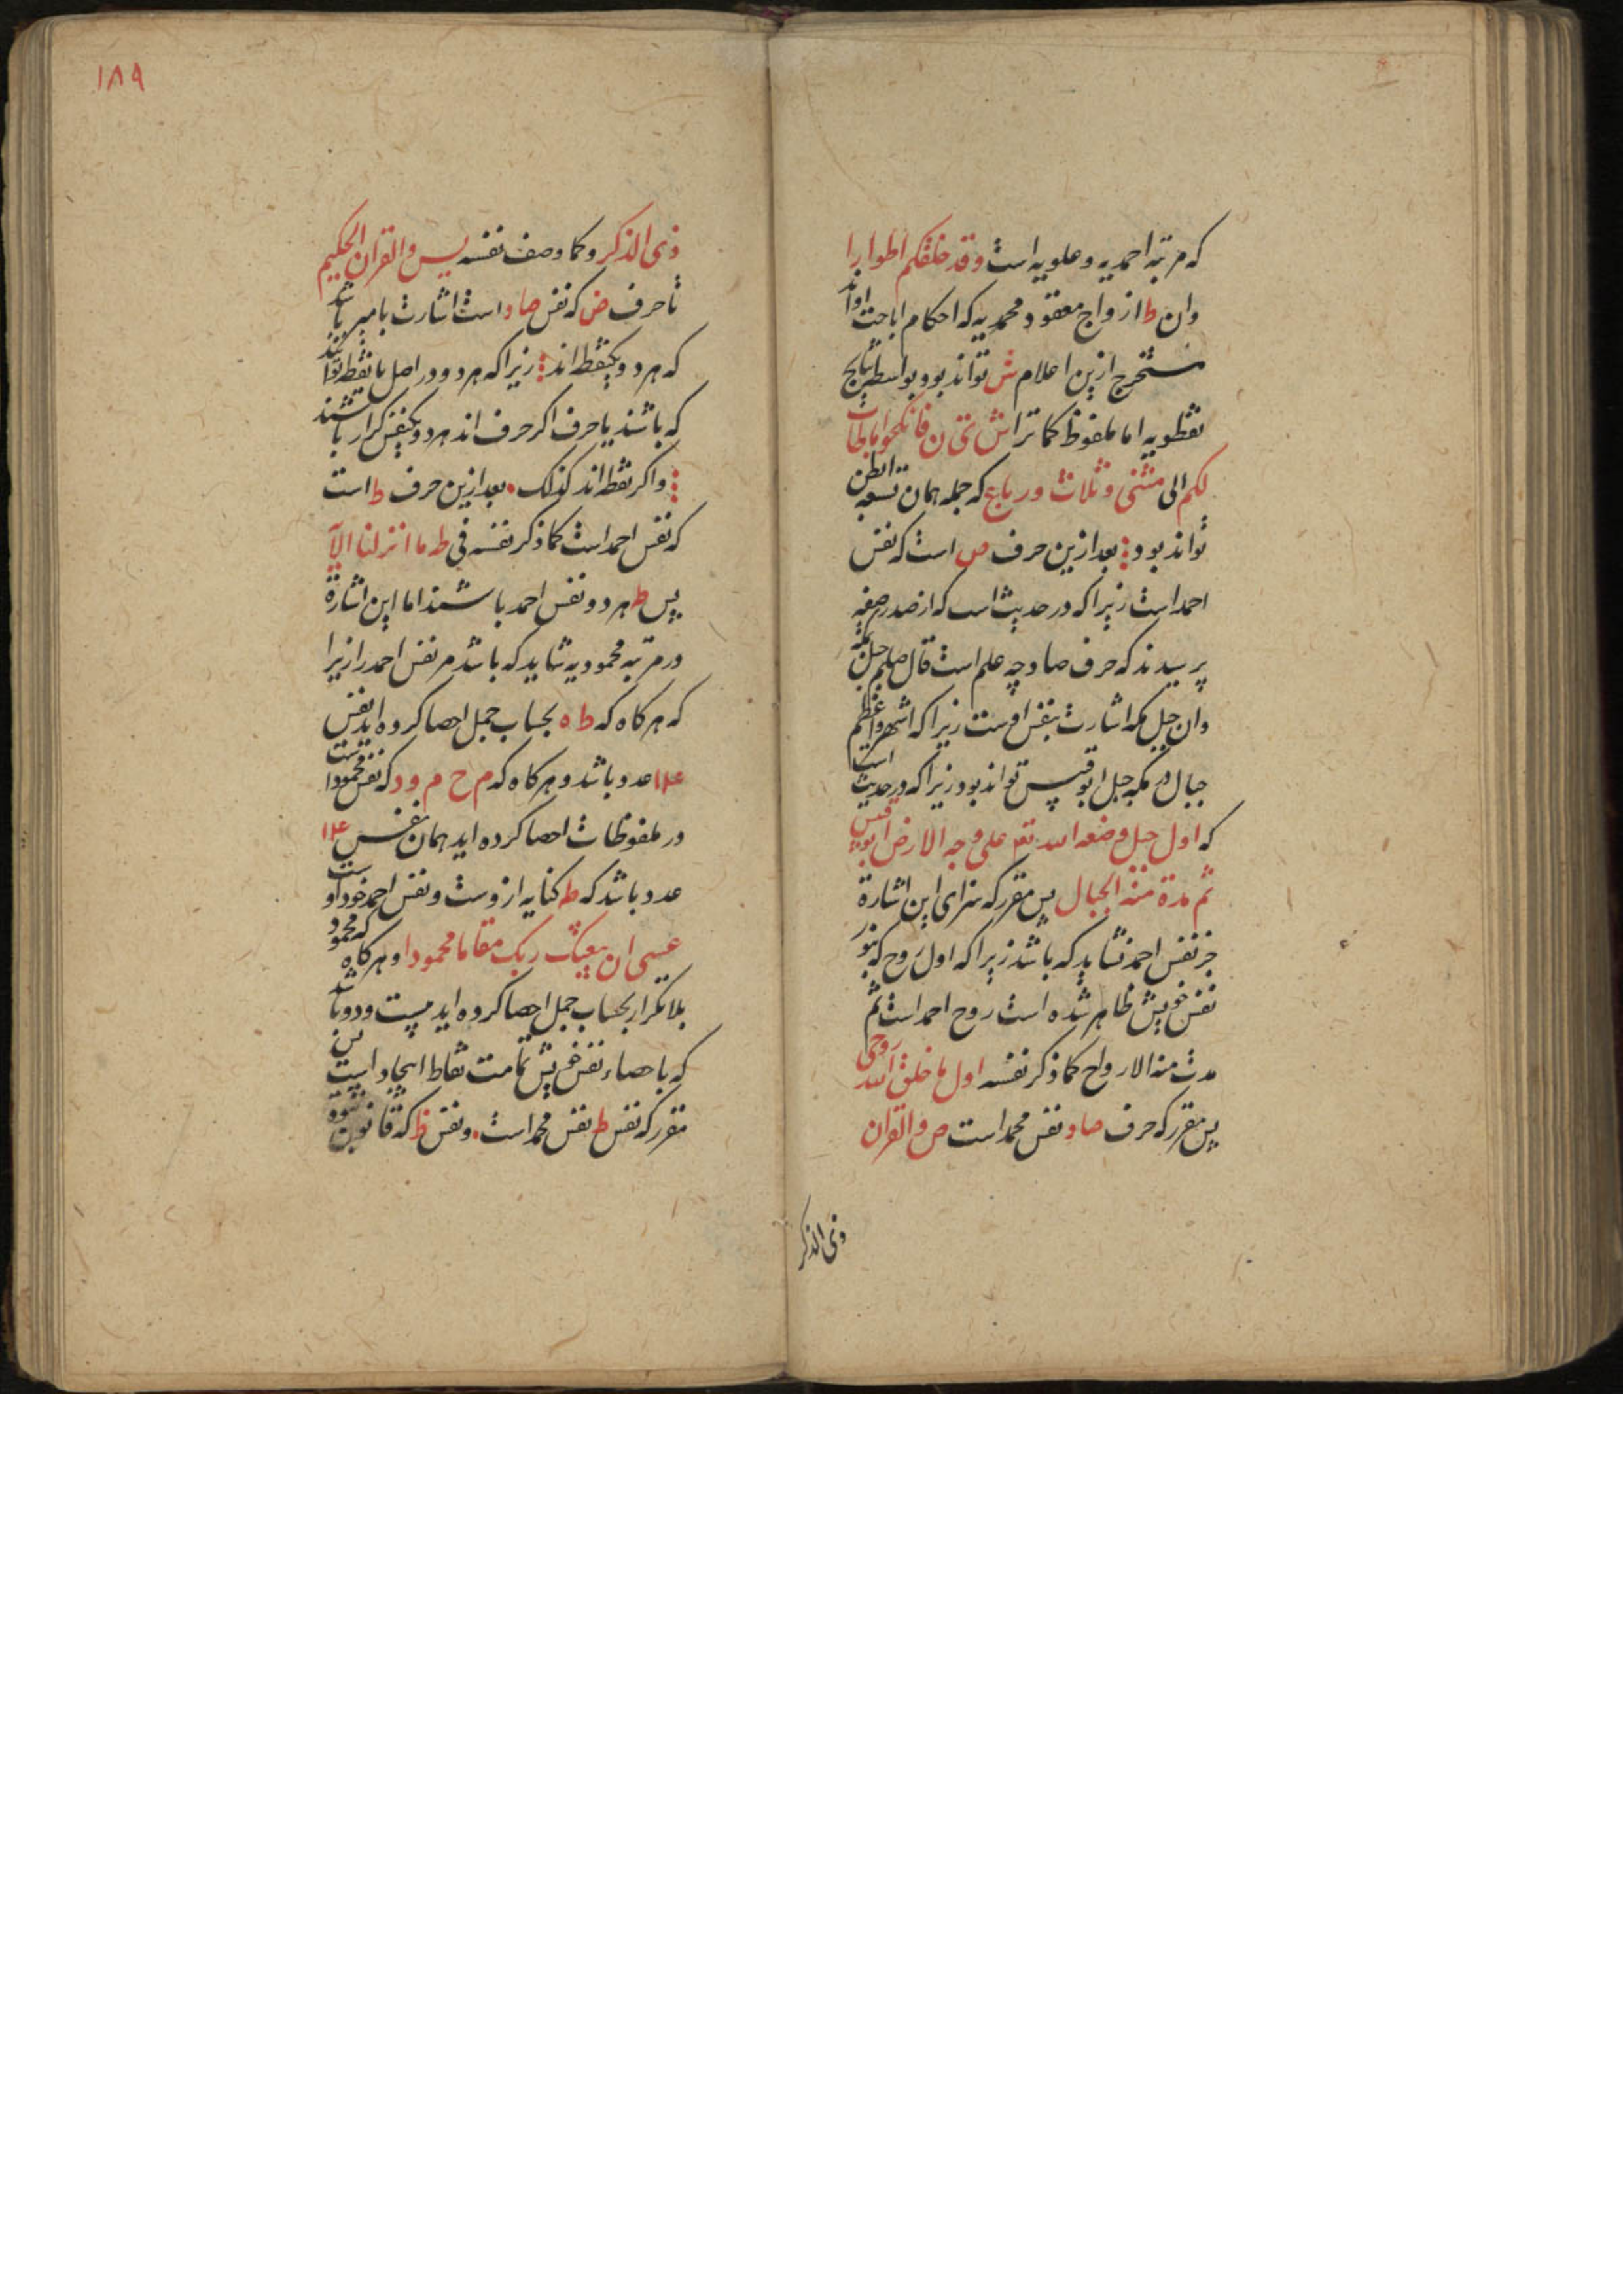 که مرتبه احمدیه و علویه است وقد خلقکم اطوارا
وان ط ازواج معقود محمدیه که احکام اباحت
مستخرج ازین اعلام ش تواند بود و بواسطه نتایج
نقطویه اما ملفوظ کما ترا ش فانکحوا ما طاب
لکم الی مثنی و ثلاث ورباع که جمله همان تسعه
تواند بود بعد ازین حرف ص است که نفس
احمد است زیرا که در حدیث است که از صدر صفه
پرسیدند که حرف صاد چه علم است قال صلعم جبل بمکه
وان جبل مکه اشارت بنفس اوست زیرا که اشهر و اعظم
جبال در مکه جبل ابو قبیس تواند بود زیرا که در حدیث است
که اول جبل وضعه الله تع علی وجه الارض ابو قبیس
ثم مدة منه الجبال پس مقرر که سزای این اشارة
جز نفس احمد نشاید که باشد زیرا که اول روح که
نفس خویش ظاهر شده است روح احمد است ثم
مدت منه الارواح کما ذکر نفسه اول ما خلق الله روحی
پس مقرر که حرف صاد نفس محمد است ص والقران
ذی الذکر
۱۸۹
ذی الذکر وکما وصف نفسه یس والقران الحکیم
تا حرف ض که نفس صاد است اشارت با باشد
که هر دو یکنقطه اند زیرا که هر دو در اصل یا نقطه توانند
که باشند یا حرف اگر حرف اند هر دو یکنفس گزار باشند
واکر نقطه اند کذلک بعد ازین حرف ط است
که نفس احمد است کما ذکر نفسه فی طه ما انزلنا الآ
پس ط هر دو نفس احمد باشند اما این اشارة
در مرتبه محمودیه شاید که باشد مر نفس احمد را زیرا
که هر کاه که ط ه بحساب جمل احصا کرده اید نفس
۱۴ عدد باشد و هر کاه که م ح م و د که نفس محمود است
در ملفوظات احصا کرده اید همان نفس ۱۴
عدد باشد که ط کنایه ازوست و نفس احمد خود اوست
عسی ان یبعثک ربک مقاما محمودا و هر کاه که محمود
بلا تکرار بحساب جمل احصا کرده اید بیست ودو باشد
که باحصاء نفس خویش تمامت نقاط ابجد است پس
مقرر که نفس ط نفس محمد است و نفس ظ که قانون